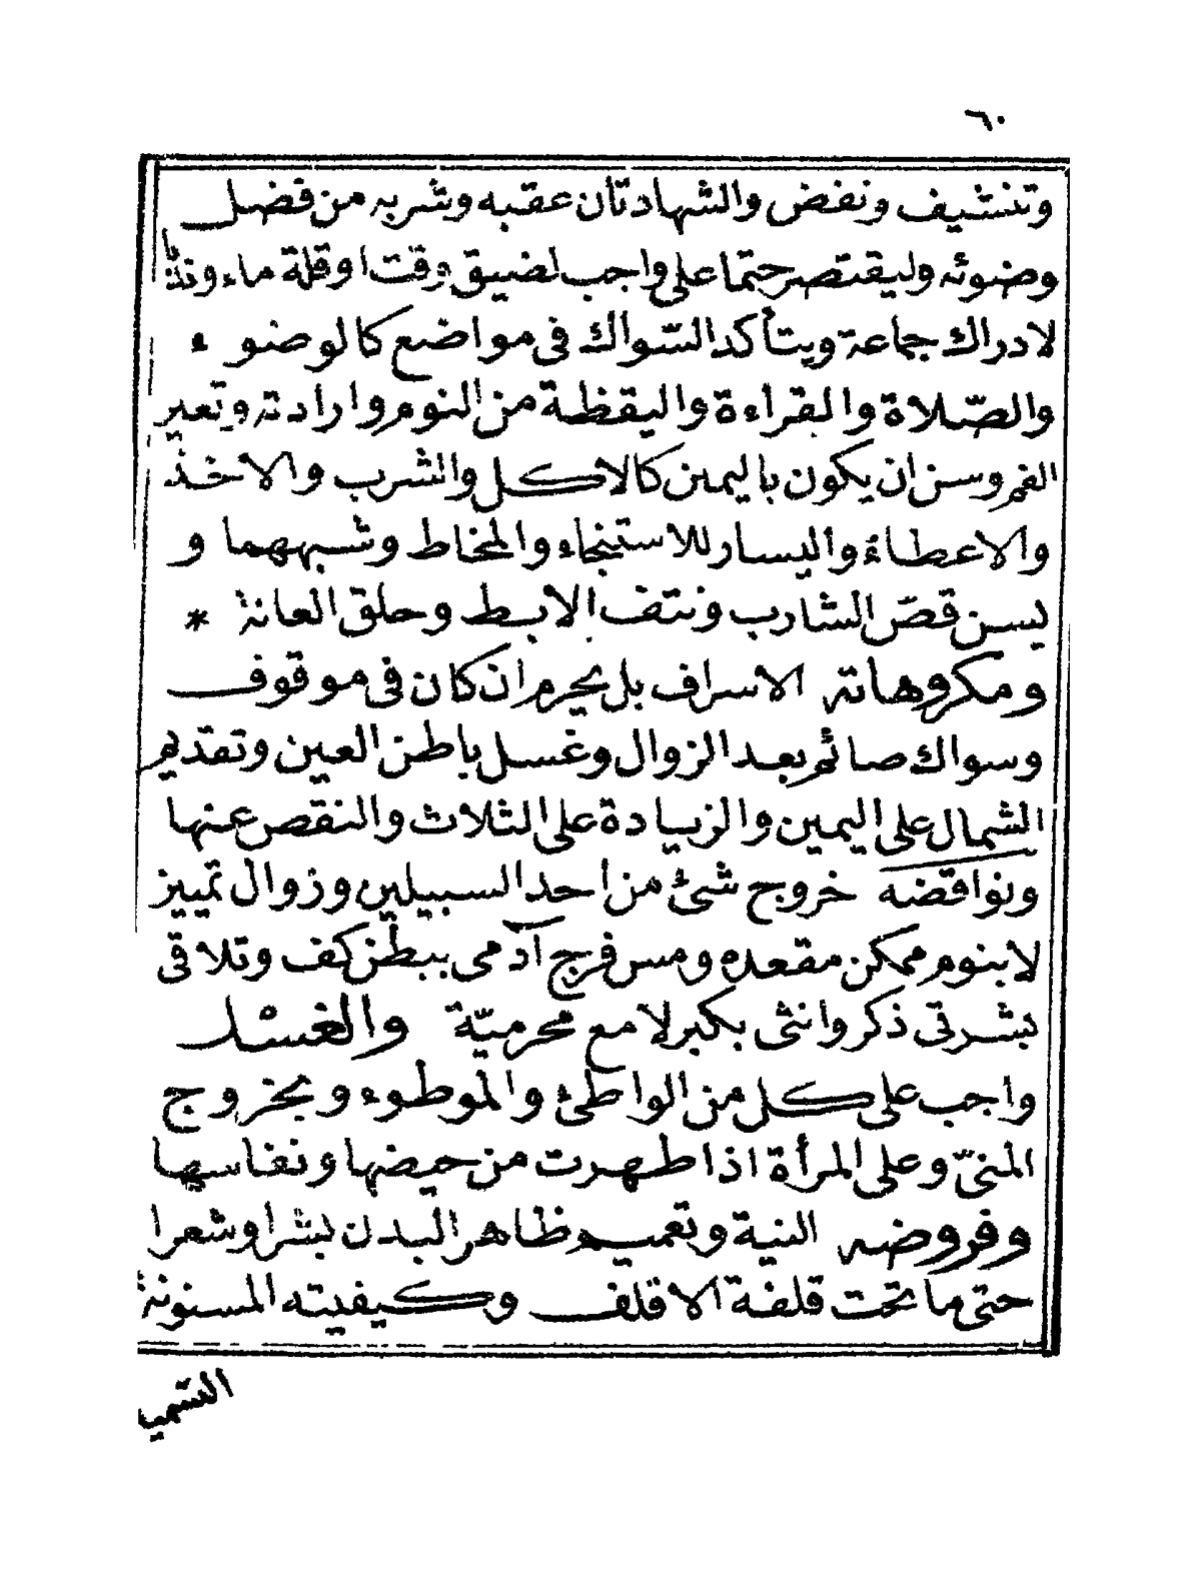 ٦٠
وتنشيف ونفض والشهادتان عقبه وشربه من فضل
وضوئه وليقتصر حتما على واجب لضيق وقت او قلة ماء وندبا
لادراك جماعة ويتأكد السّواك فى مواضع كالوضوء
والصّلاة والقراءة واليقظة من النوم وارادته وتغير
الفم وسن ان يكون باليمين كالاكل والشرب والاخذ
والاعطاء واليسار للاستنجاء والمخاط وشبههما و
يسن قصّ الشارب ونتف الابط وحلق العانة *
ومكروهاته الاسراف بل يحرم ان كان فى موقوف
وسواك صائم بعد الزوال وغسل باطن العين وتقديم
الشمال على اليمين والزيادة على الثلاث والنقص عنها
ونواقضه خروج شئ من أحد السبيلين وزوال تمييز
لا بنوم ممكن مقعده ومس فرج آدمى ببطن كف وتلاقى
بشرتى ذكر وانثى بكبر لا مع محرميّة والغسْل
واجب على كل من الواطئ والموطوء وبخروج
المنىّ وعلى المرأة اذا طهرت من حيضها ونفاسها
وفروضه النية وتعميم ظاهر البدن بشرا وشعرا
حتى ما تحت قلفة الاقلف وكيفيته المسنونة
التسمية